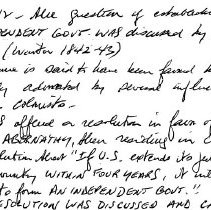 NY - The question of establish
PENDENT GOVT. WAS discussed by
(Winter 1842-43)
is said to have been favored
advocated by several influ
colonists.
offered a resolution in favor of
ABERNATHY, then residing in O
lution that "If U.S. extends its ju
country WITHIN FOUR YEARS, it wil
to form AN INDEPENDENT GOVT."
RESOLUTION WAS DISCUSSED AND C